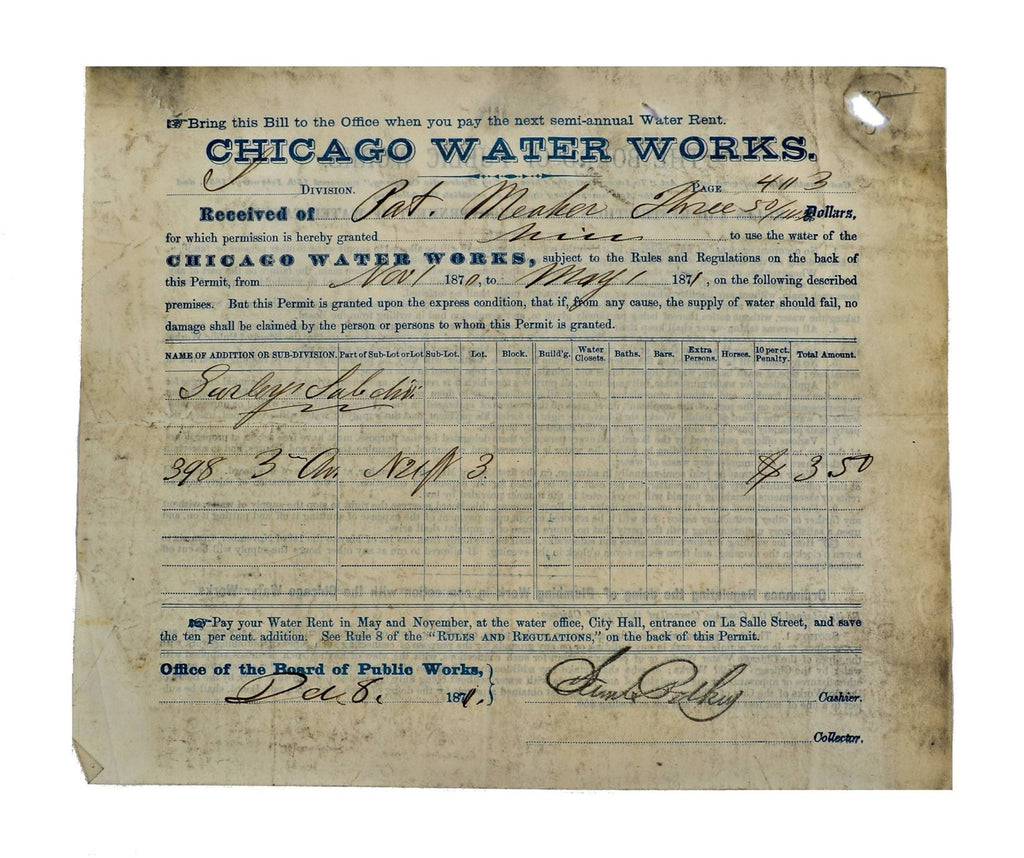 ☞Bring this Bill to the Office when you pay the next semi-annual Water Rent.
CHICAGO WATER WORKS.
S DIVISION. PAGE 403
Received of Pat. Meaher Three 50/100 Dollars,
for which permission is hereby granted him to use the water of the
CHICAGO WATER WORKS, subject to the Rules and Regulations on the back of
this Permit, from Nov 1 1870, to May 1 1871, on the following described
premises. But this Permit is granted upon the express condition, that if, from any cause, the supply of water should fail, no
damage shall be claimed by the person or persons to whom this Permit is granted.
NAME OF ADDITION OR SUB-DIVISION. Part of Sub-Lot or Lot Sub-Lot. Lot. Block. Build'g. Water Closets. Baths. Bars. Extra Persons. Horses. 10 per ct. Penalty. Total Amount.
Subdiv.
398 3 Av. N 21 ft 3 $ 3.50
☞Pay your Water Rent in May and November, at the water office, City Hall, entrance on La Salle Street, and save
the ten per cent. addition. See Rule 8 of the "RULES AND REGULATIONS," on the back of this Permit.
Office of the Board of Public Works,
Dec 8. 1870.
Cashier.
Collector.